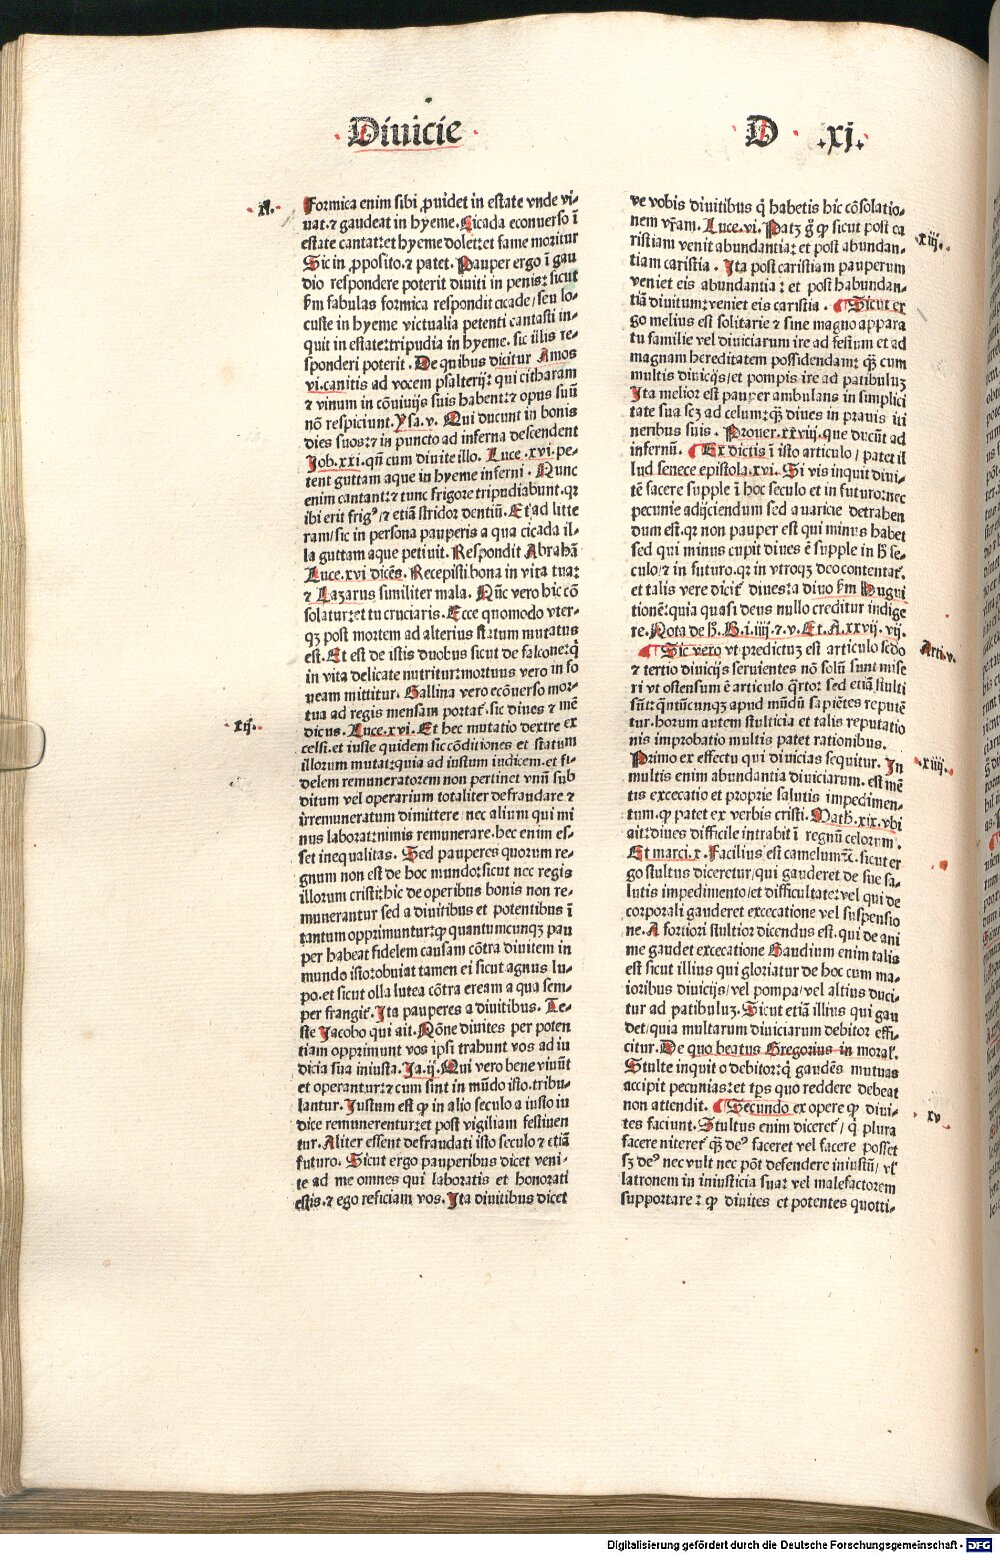 Diuicie
D .xj.
xj.
Formica enim sibi ꝓuidet in estate vnde vi-
uat.⁊ gaudeat in hyeme.Cicada econuerso ī
estate cantat:et hyeme dolet:et fame moritur
Sic in ꝓposito.⁊ patet. Pauper ergo ī gau
dio respondere poterit diuiti in penis: sicut
ẜm fabulas formica respondit cicade/seu lo-
custe in hyeme victualia petenti cantasti in-
quit in estate:tripudia in hyeme. sic illis re-
sponderi poterit. De quibus dicitur Amos
vi.canitis ad vocem psalterij: qui citharam
⁊ vinum in cōuiuijs suis habent:⁊ opus suū
nō respiciunt.Ysa.v. Qui ducunt in bonis
dies suos:⁊ in puncto ad inferna descendent
Job.xxi.qn̄ cum diuite illo. Luce .xvi.pe-
tent guttam aque in hyeme inferni. Nunc
enim cantant:⁊ tunc frigore tripudiabunt.qꝛ
ibi erit frigꝰ/⁊ etiā stridor dentiū. Et ad litte
ram/sic in persona pauperis a qua cicada il-
la guttam aque petiuit. Respondit Abrahā
Luce.xvi dicēs. Recepisti bona in vita tua:
⁊ Lazarus similiter mala. Nūc vero hic cō
solatur:et tu cruciaris. Ecce quomodo vter-
qꝫ post mortem ad alterius statum mutatus
est. Et est de istis duobus sicut de falcone:q̇
in vita delicate nutritur:mortuus vero in fo
ueam mittitur. Gallina vero ecōuerso mor-
tua ad regis mensam portat᷑.sic diues ⁊ mē
xij.
dicus. Luce.xvi. Et hec mutatio dextre ex
celsi.et iuste quidem sic cōditiones et statum
illorum mutat:quia ad iustum iudicem.et fi-
delem remuneratorem non pertinet vnū sub
ditum vel operarium totaliter defraudare ⁊
irremuneratum dimittere nec alium qui mi
nus laborat:nimis remunerare.hec enim es-
set inequalitas. Sed pauperes quorum re-
gnum non est de hoc mundo:sicut nec regis
illorum cristi:hic de operibus bonis non re-
munerantur sed a diuitibus et potentibus ī
tantum opprimuntur:ꝙ quantumcunqꝫ pau
per habeat fidelem causam cōtra diuitem in
mundo isto:obuiat tamen ei sicut agnus lu-
po.et sicut olla lutea cōtra eream a qua sem-
per frangit᷑. Ita pauperes a diuitibus. Te-
ste Jacobo qui ait. Nōne diuites per poten
tiam opprimunt vos ipsi trahunt vos ad iu
dicia sua iniusta.Ja.ij. Qui vero bene viuūt
et operantur:⁊ cum sint in mūdo isto.tribu-
lantur. Justum est ꝙ in alio seculo a iusto iu
dice remunerentur:et post vigiliam festiuen
tur. Aliter essent defraudati isto seculo ⁊ etiā
futuro. Sicut ergo pauperibus dicet veni-
te ad me omnes qui laboratis et honorati
estis.⁊ ego reficiam vos. Ita diuitibus dicet
ve vobis diuitibus q̇ habetis hic cōsolatio-
nem vr̄am. Luce.vi. Patꝫ g̊ ꝙ sicut post ca
xiij.
ristiam venit abundantia: et post abundan-
tiam caristia. Ita post caristiam pauperum
veniet eis abundantia: et post habundan-
tiā diuitum:veniet eis caristia. Sicut er
go melius est solitarie ⁊ sine magno appara
tu familie vel diuiciarum ire ad festum et ad
magnam hereditatem possidendam: q̄ꝫ cum
multis diuicijs/et pompis ire ad patibuluꝫ
Ita melior est pauper ambulans in simplici
tate sua scꝫ ad celum:q̄ꝫ diues in prauis iti
neribus suis. Prouer.xxviij.que ducūt ad
infernū. Ex dictis ī isto articulo/patet il
lud senece epistola.xvi. Si vis inquit diui-
tē facere supple ī hoc seculo et in futuro:nec
pecunie adijciendum sed auaricie detraben
dum est.qꝛ non pauper est qui minus habet
sed qui minus cupit diues ē supple in h̄ se-
culo/⁊ in futuro.qꝛ in vtroqꝫ deo contentat᷑.
et talis vere dicit᷑ diues:a diuo ẜm Hugui
tionē:quia quasi deus nullo creditur indige
re. Nota de h̄. B.i.iiij.⁊.v. Et.A.xxvij.vij.
Arti.v.
Sic vero vt predictuꝫ est articulo scd̄o
⁊ tertio diuicijs seruientes nō solū sunt mise
ri vt ostensum ē articulo q̄rto: sed etiā stulti
sūt: q̄ntūcunqꝫ apud mūdū sapiētes reputē
tur.horum autem stulticia et talis reputatio
nis improbatio multis patet rationibus.
xiiij.
Primo ex effectu qui diuicias sequitur. In
multis enim abundantia diuiciarum.est mē
tis excecatio et proprie salutis impedimen-
tum.ꝙ patet ex verbis cristi. Math̄.xix.vbi
ait:diues difficile intrabit ī regnū celorum.
Et marci.x. Facilius est camelum ⁊c̄.sicut er
go stultus diceretur/qui gauderet de sue sa-
lutis impedimento/et difficultate:vel qui de
corporali gauderet excecatione vel suspensio
ne. A fortiori stultior dicendus est.qui de ani
me gaudet excecatione Gaudium enim talis
est sicut illius qui gloriatur de hoc cum ma-
ioribus diuicijs/vel pompa/vel altius duci-
tur ad patibuluꝫ. Sicut etiā illius qui gau
det/quia multarum diuiciarum debitor effi-
citur. De quo beatus Gregorius in moral᷑.
Stulte inquit o debitor:q̇ gaudēs mutuas
accipit pecunias:et tp̄s quo reddere debeat
non attendit. Secundo ex opere ꝙ diui-
xv
tes faciunt. Stultus enim diceret᷑/ q̇ plura
facere niteret᷑ q̄ꝫ deꝰ faceret vel facere posset
sꝫ deꝰ nec vult nec pōt defendere iniustū/ vl᷑
latronem in iniusticia sua: vel malefactorem
supportare: ꝙ diuites et potentes quotti-
Digitalisierung gefördert durch die Deutsche Forschungsgemeinschaft - DFG